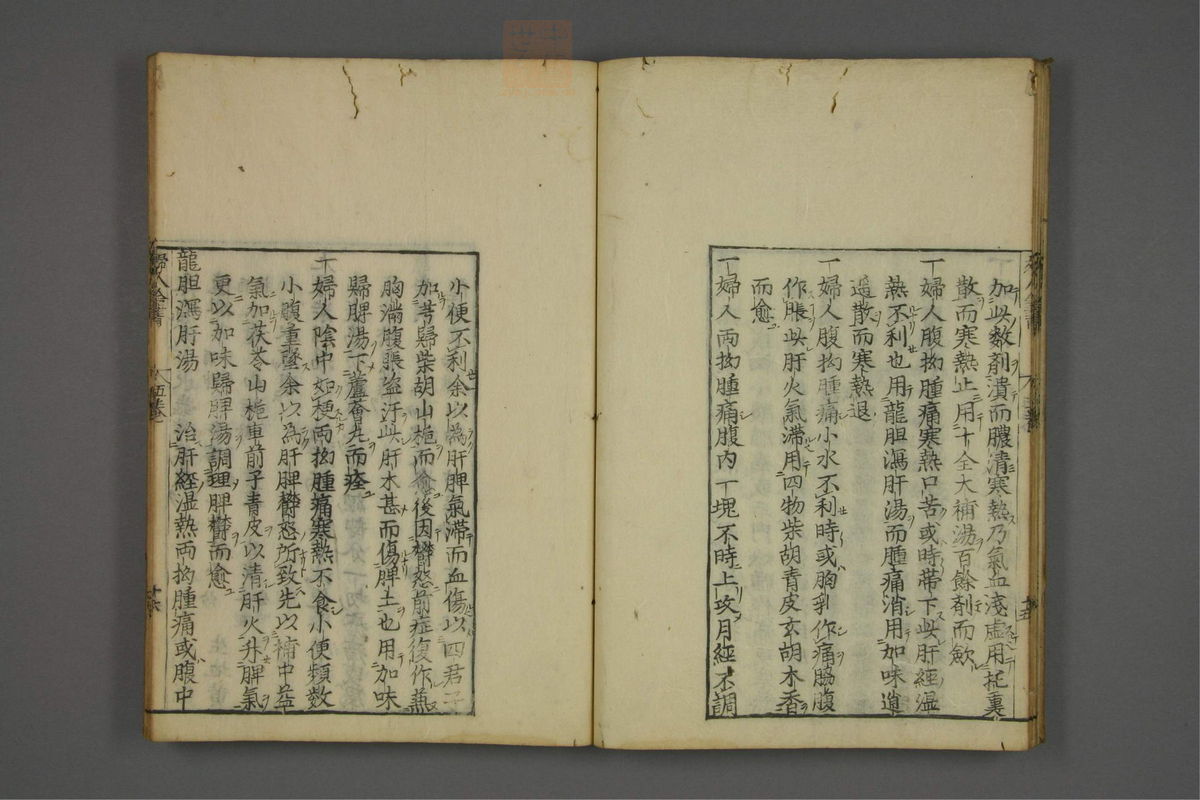 加此數劑潰而膿清寒熱乃氣血淺虛用托裏
散而寒熱止用十全大補湯百餘劑而歛
一婦人腹拗腫痛寒熱口苦或時帶下此肝經湿
熱不利也用龍胆瀉肝湯而腫痛消用加味逍
遥散而寒熱退
一婦人腹拗腫痛小水不利時或胸乳作痛脇腹
作脹此肝火氣滞用四物柴胡青皮玄胡木香
而愈
一婦人両拗腫痛腹内一塊不時上攻月經不調
小便不利余以為肝脾氣滞而血傷以四君子
加芎歸柴胡山梔而愈後因欝怒前症復作兼
胸滿腹脹盗汗此肝木甚而傷脾土也用加味
歸脾湯下蘆薈丸而痊
一婦人陰中如梗両拗腫痛寒熱不食小便頻数
小腹重墜余以為肝脾欝怒所致先以補中益
氣加茯苓山梔車前子青皮以清肝火升脾氣
更以加味歸脾湯調理脾欝而愈
龍胆瀉肝湯 治肝經湿熱両拗腫痛或腹中
婦人全書
五卷